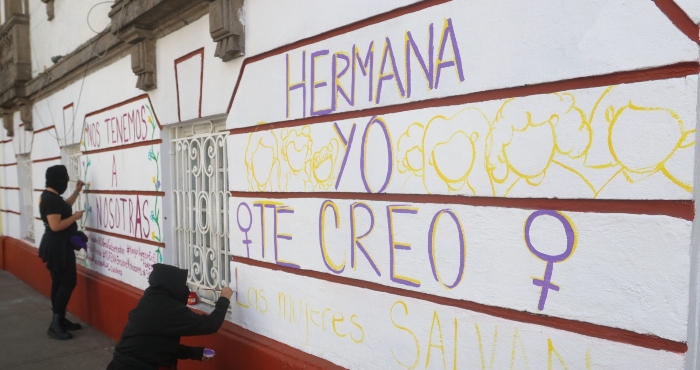 NOS TENEMOS
A
NOSOTRAS
HERMANA
YO
TE CREO
Las mujeres SALVAN